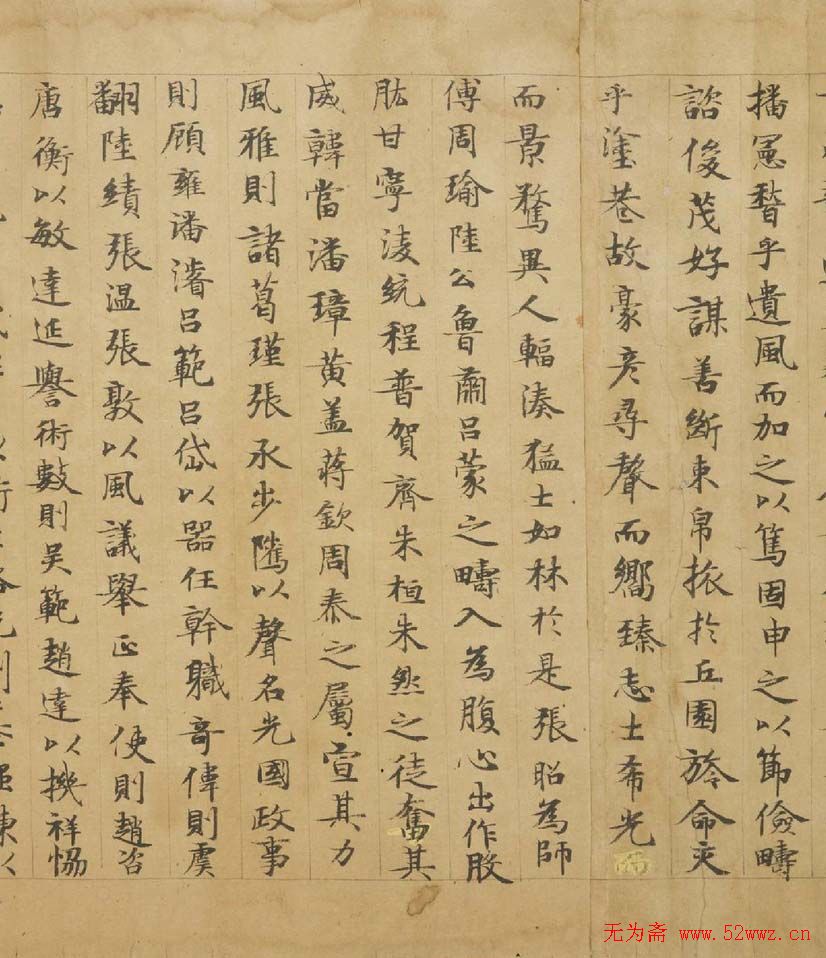 播憲稽乎遺風而加之以篤固申之以節儉疇
諮俊茂好謀善斷束帛旅於丘園旌命交
乎塗巷故豪彥尋聲而嚮臻志士希光
而景騖異人輻湊猛士如林於是張昭為師
傅周瑜陸公魯肅呂蒙之疇入為腹心出作股
肱甘寧淩統程普賀齊朱桓朱然之徒奮其
威韓當潘璋黃蓋蔣欽周泰之屬宣其力
風雅則諸葛瑾張承步騭以聲名光國政事
則顧雍潘濬呂範呂岱以器任幹職奇偉則虞
翻陸績張溫張敦以風議舉正奉使則趙咨
唐衡以敏達延譽術數則吳範趙達以機祥恊
无为斋 www.52wwz.cn